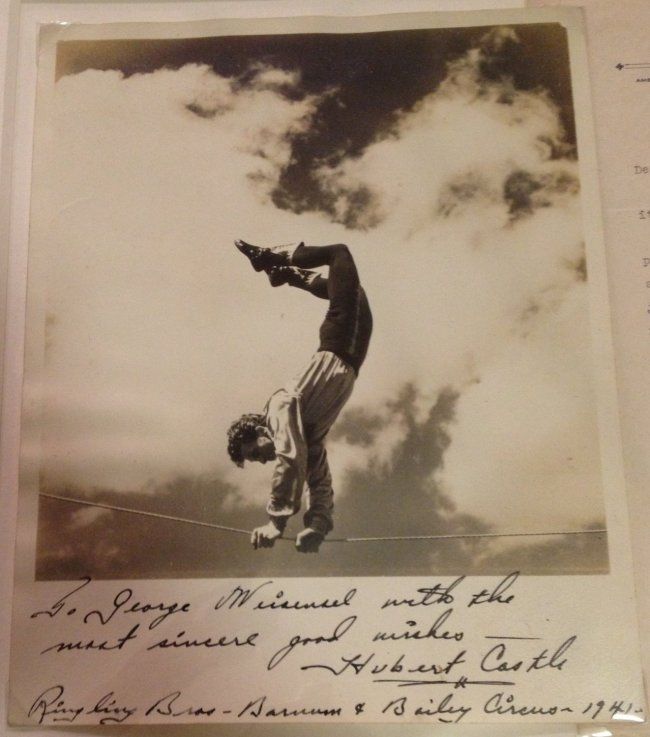 To George Weisensel with the
most sincere good wishes —
Hubert Castle
Ringling Bros - Barnum & Bailey Circus - 1941.